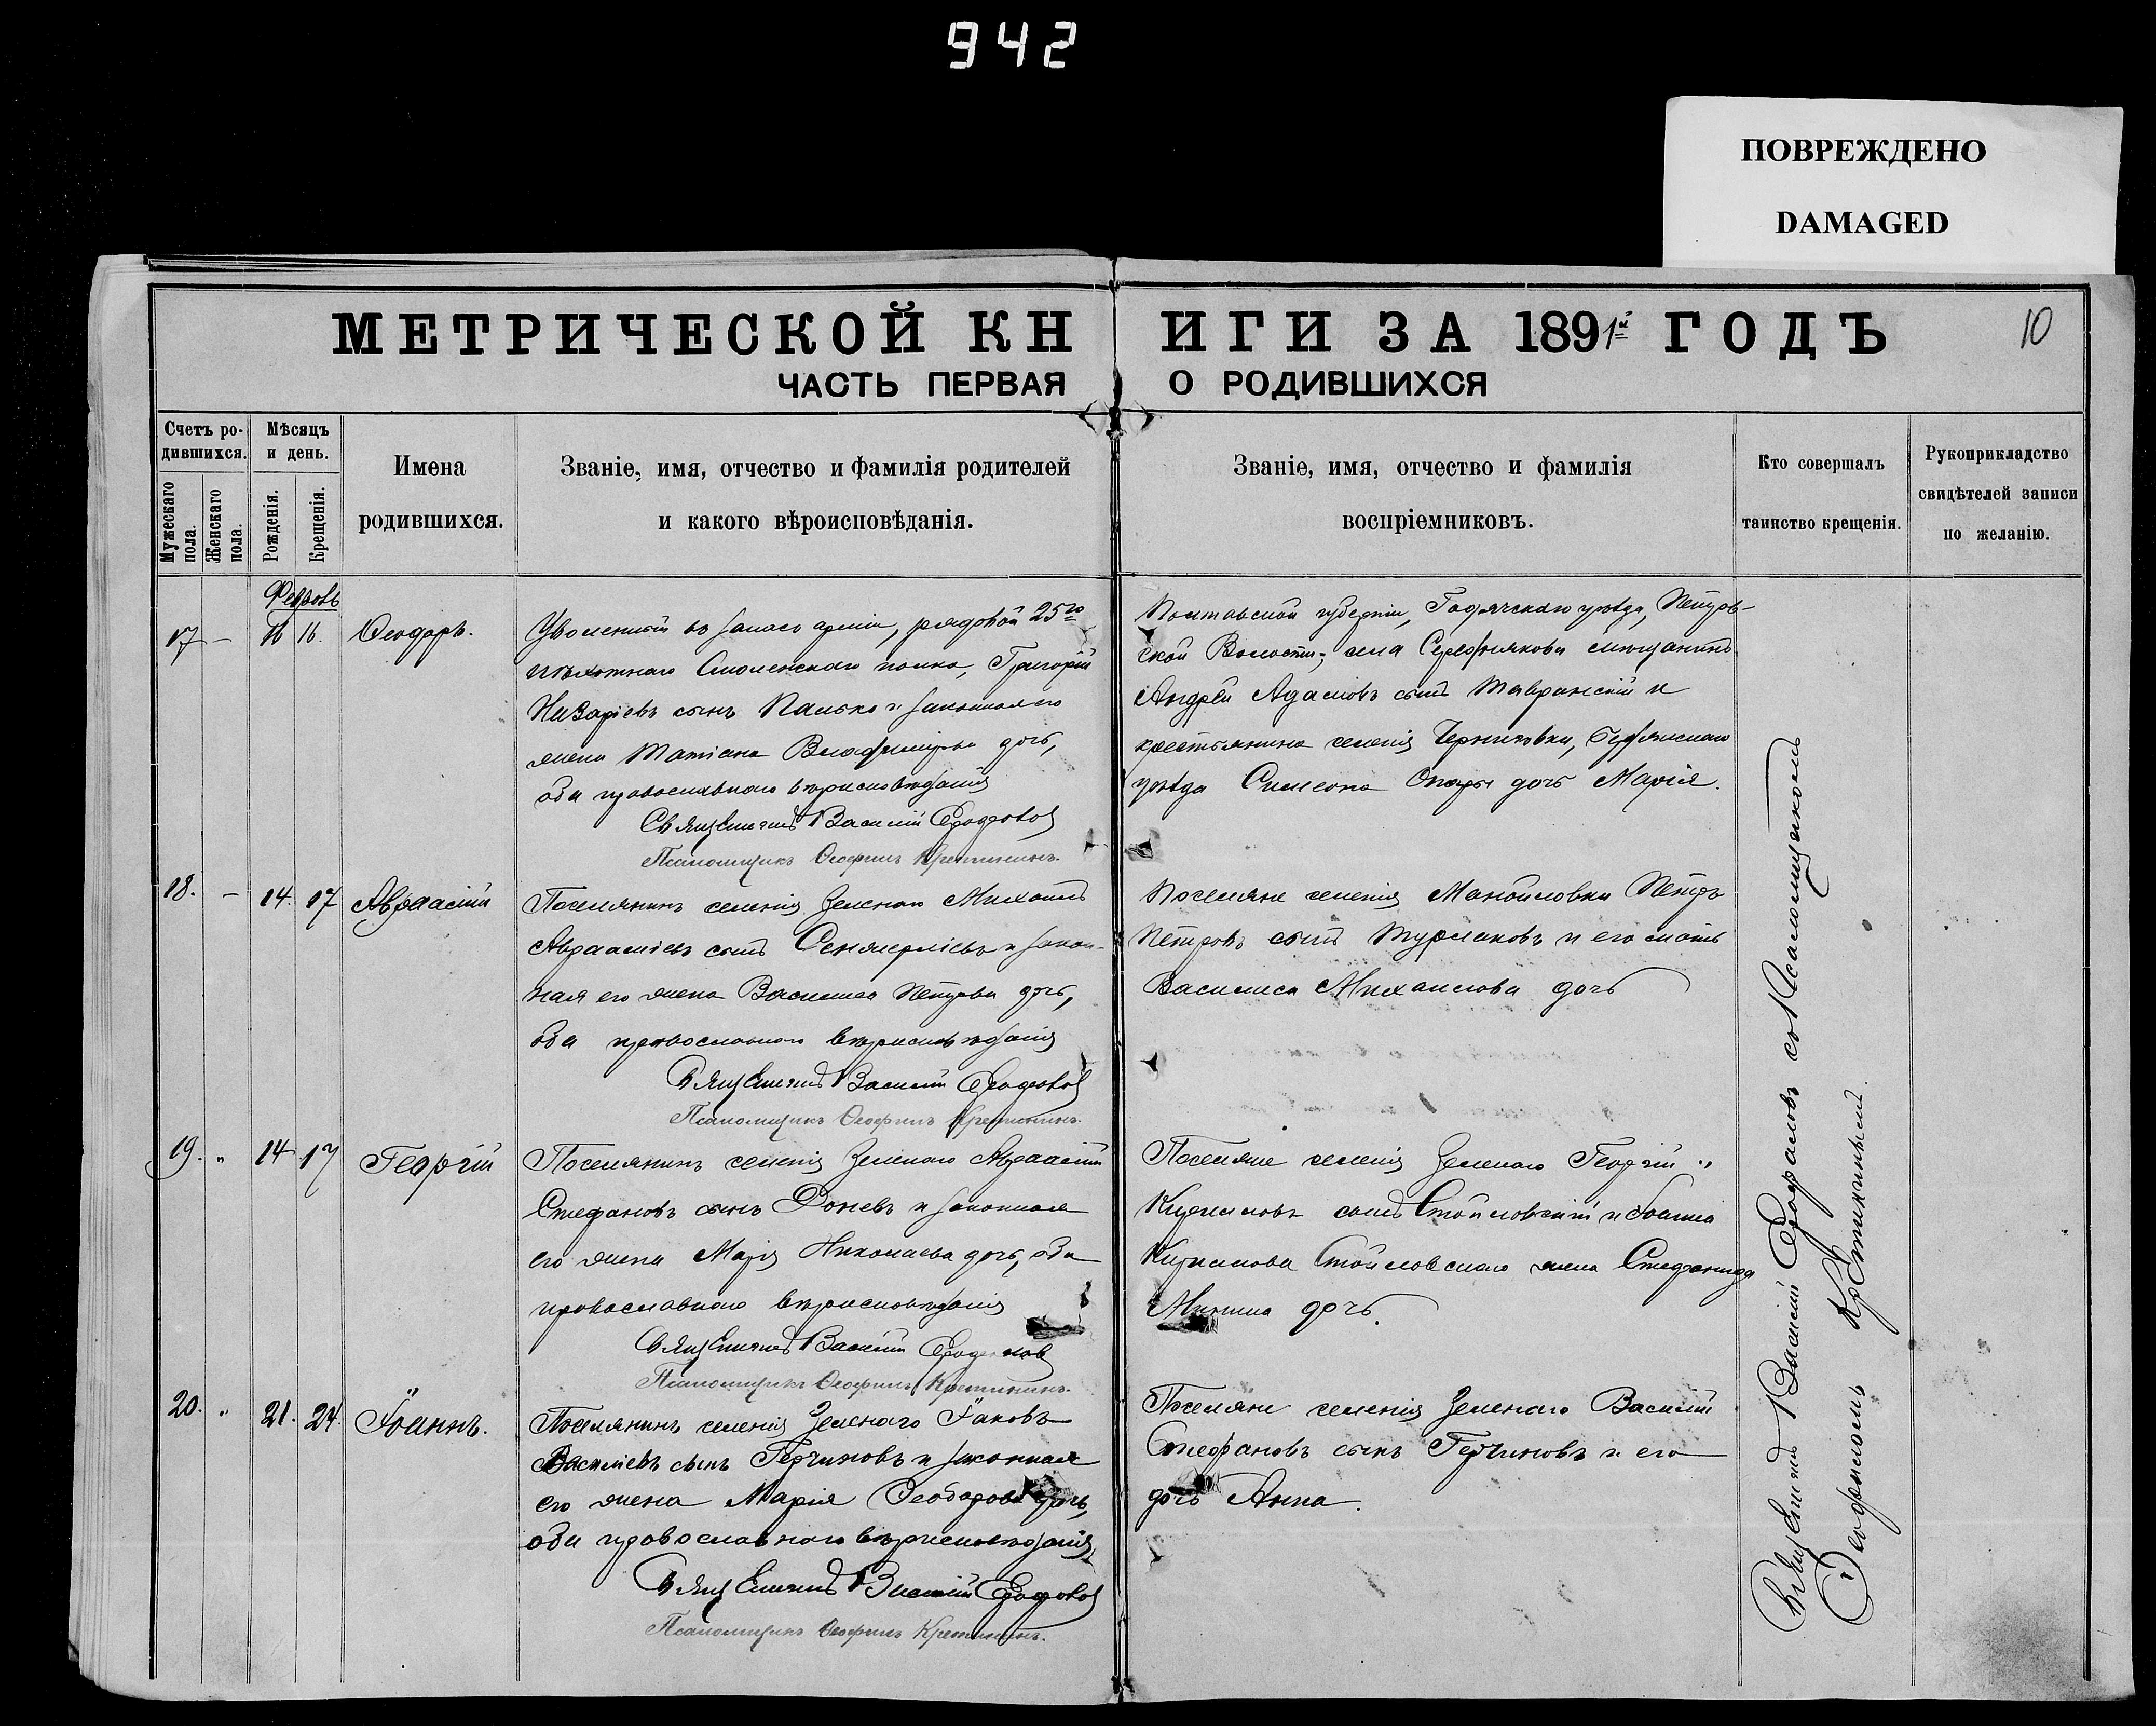 942
ПОВРЕЖДЕНО
DAMAGED
МЕТРИЧЕСКОЙ КНИГИ ЗА 1891й ГОДЪ
10
ЧАСТЬ ПЕРВАЯ О РОДИВШИХСЯ
Счетъ ро-
дившихся.
Мужескаго пола.
Женскаго пола.
Мѣсяцъ
и день.
Рожденія.
Крещенія.
Имена
родившихся.
Званіе, имя, отчество и фамилія родителей
и какого вѣроисповѣданія.
Званіе, имя, отчество и фамилія
воспріемниковъ.
Кто совершалъ
таинство крещенія.
Рукоприкладство
свидѣтелей записи
по желанію.
17 – 16.
Ѳеодоръ.
Уволенный въ запасъ арміи, рядовой 25го
пѣхотнаго Смоленскаго полка, Григорій
Назаріевъ сынъ и законная его
жена Татіана Владимірова дочь,
оба православнаго вѣроисповѣданія
Священникъ Василій
Псаломщикъ Ѳеофилъ
Полтавской губерніи, Гадячскаго уѣзда, Петров-
ской Волости, села мѣщанинъ
Андрей Адамовъ сынъ и
крестьянина селенія Черниговки, Бердянскаго
уѣзда Симеона дочь Марія.
18. – 14. 17
Авраамій
Поселянинъ селенія Зеленаго Михаилъ
Авраамiевъ сынъ и закон-
ная его жена Василиса Петрова дочь,
оба православнаго вѣроисповѣданія
Священникъ Василій
Псаломщикъ Ѳеофилъ
Поселяне селенія Мануйловки Петръ
Петровъ сынъ Турлаковъ и его мать
Василиса Михаилова дочь
19. " 14 17
Георгій
Поселянинъ селенія Зеленаго Авраамій
Стефановъ сынъ Доневъ и законная
его жена Марія Николаева дочь, оба
православнаго вѣроисповѣданія
Священникъ Василій
Псаломщикъ Ѳеофилъ
Поселяне селенія Зеленаго Георгій
Кирилловъ сынъ Стойловскій и Іоанна
Кириллова Стойловскаго жена Стефанида
дочь.
20. " 21. 24.
Іоаннъ.
Поселянинъ селенія Зеленаго Іаковъ
Василіевъ сынъ Герчиковъ и законная
его жена Марія Ѳеодорова дочь,
оба православнаго вѣроисповѣданія
Священникъ Василій
Псаломщикъ Ѳеофилъ
Поселяне селенія Зеленаго Василій
Стефановъ сынъ Герчиковъ и его
дочь Анна.
Священникъ Василій съ Псаломщикомъ
Ѳеофиломъ